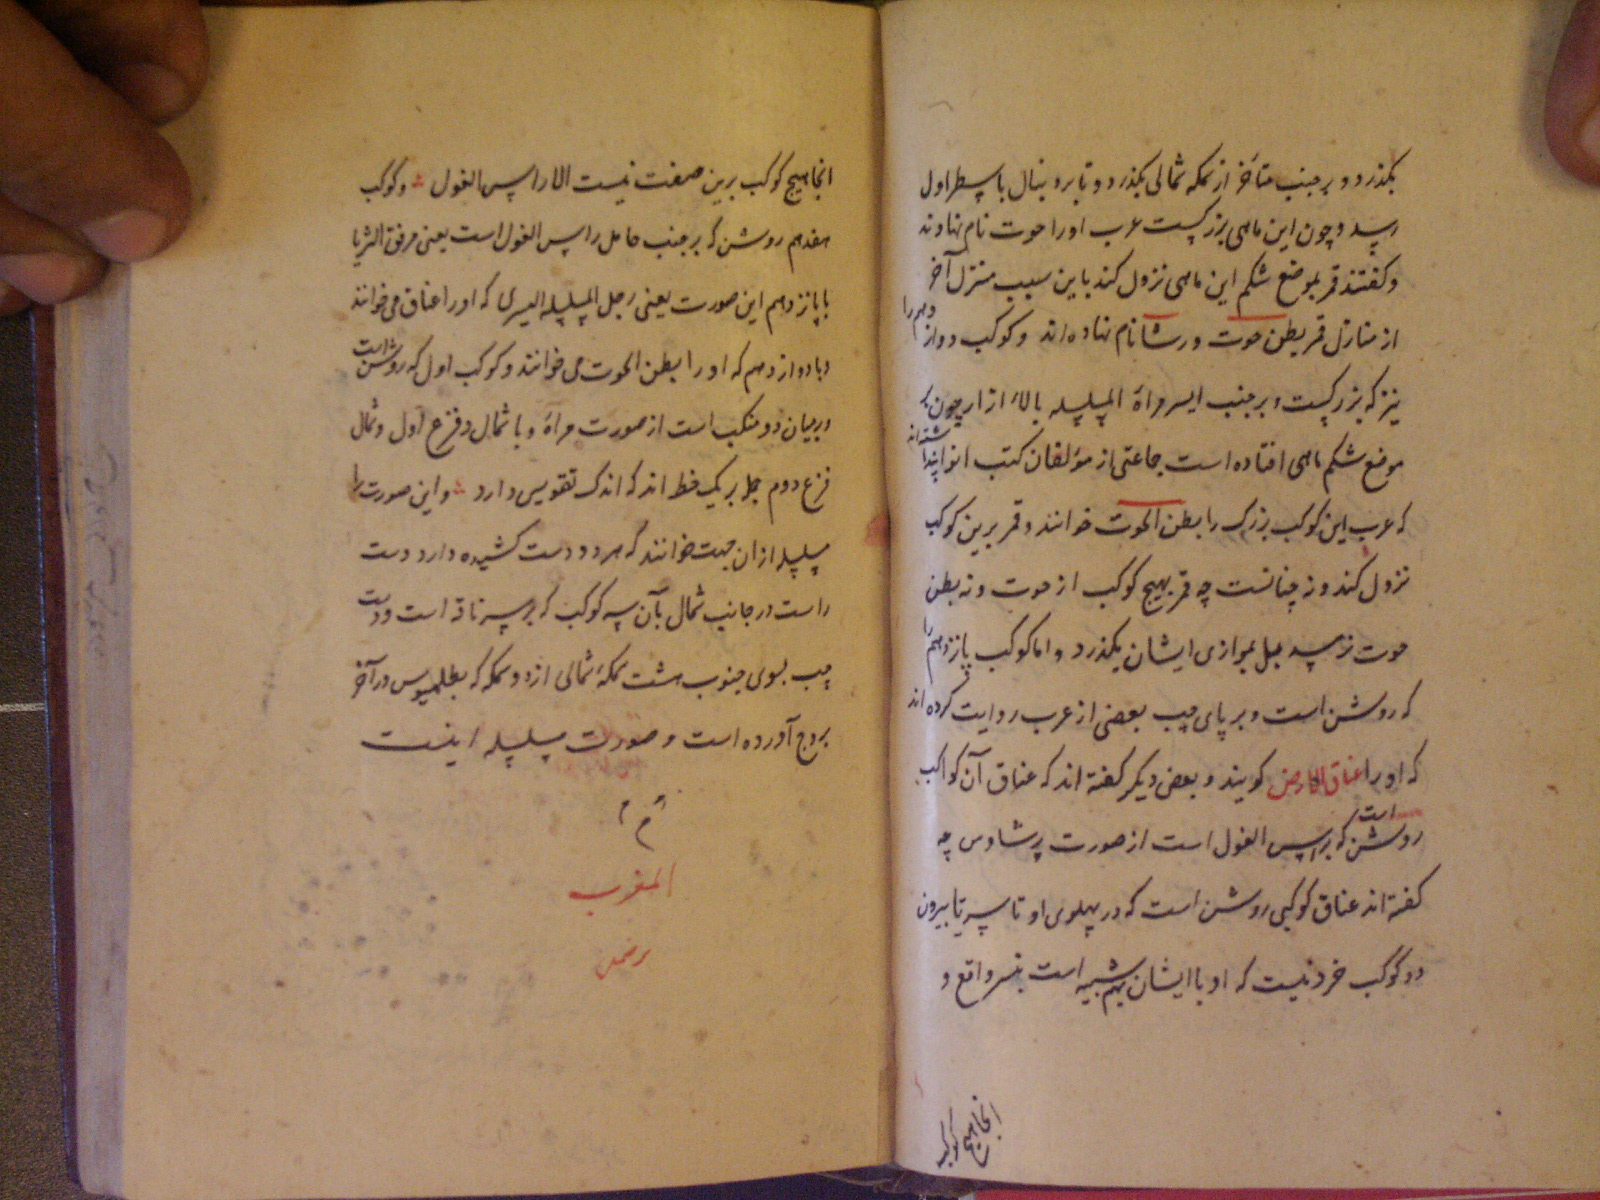 بکذرد و بر جنب متأخر از سمکه شمالی بکذرد و تا بر دنبال با سطر اول
رسد و چون این ماهی بزرکست عرب او را حوت نام نهادند
و کفتند قمر بموضع شکم این ماهی نزول کند باین سبب منزل آخر
از منازل قمر بطن حوت و رشا نام نهاده اند و کوکب دوازدهم را
نیز که بزرکست و بر جنب ایسر مراة المسلسله بالاء ازار چون بر
موضع شکم ماهی افتاده است جماعتی از مؤلفان کتب انوا
که عرب این کوکب بزرک را بطن الحوت خوانند و قمر برین کوکب
نزول کند و نه چنانست چه قمر بهیچ کوکب از حوت و نه بطن
حوت نرسد بل بموازی ایشان بکذرد و اما کوکب پانزدهم را
که روشن است و بر پای چپ بعضی از عرب روایت کرده اند
که او را عناق الارض کویند و بعضی دیکر کفته اند که عناق آن کوکب
روشن است که بر راس الغول است از صورت برشاوس چه
کفته اند عناق کوکبی روشن است که در پهلوی او تا سه یا بیرون
دو کوکب خرد نیست که او با ایشان بهم شبیه است بنسر واقع و
انجا هیچ کوکب
انجا هیچ کوکب برین صفت نیست الا راس الغول و کوکب
هفدهم روشن که بر جنب حامل راس الغول است یعنی مرفق الثریا
با پانزدهم این صورت یعنی رجل المسلسله الیسری که او را عناق می خوانند
و با دوازدهم که او را بطن الحوت می خوانند و کوکب اول که روشن است
و در میان دو منکب است از صورت مراة و با شمال فرع اول و شمال
فرع دوم جمله بر یک خط اند که اندک تقویس دارد و این صورت را
مسلسله از ان جهت خوانند که هر دو دست کشیده دارد دست
راست در جانب شمال بآن سه کوکب که بر سر ناقه است و دست
چپ بسوی جنوب هشت سمکه شمالی از دو سمکه که بطلمیوس در آخر
بروج آورده است و صورت مسلسله اینست
م
المغرب